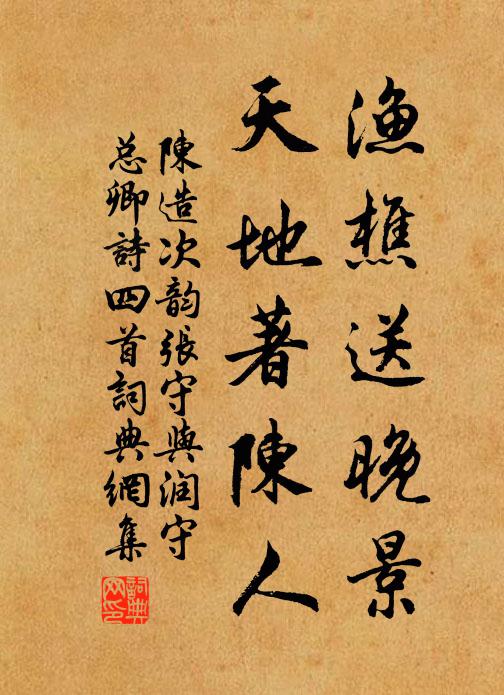 漁樵送晚景
天地著陳人
陳造次韵張守與润守
总卿詩四首詞典網集
詞典
网印